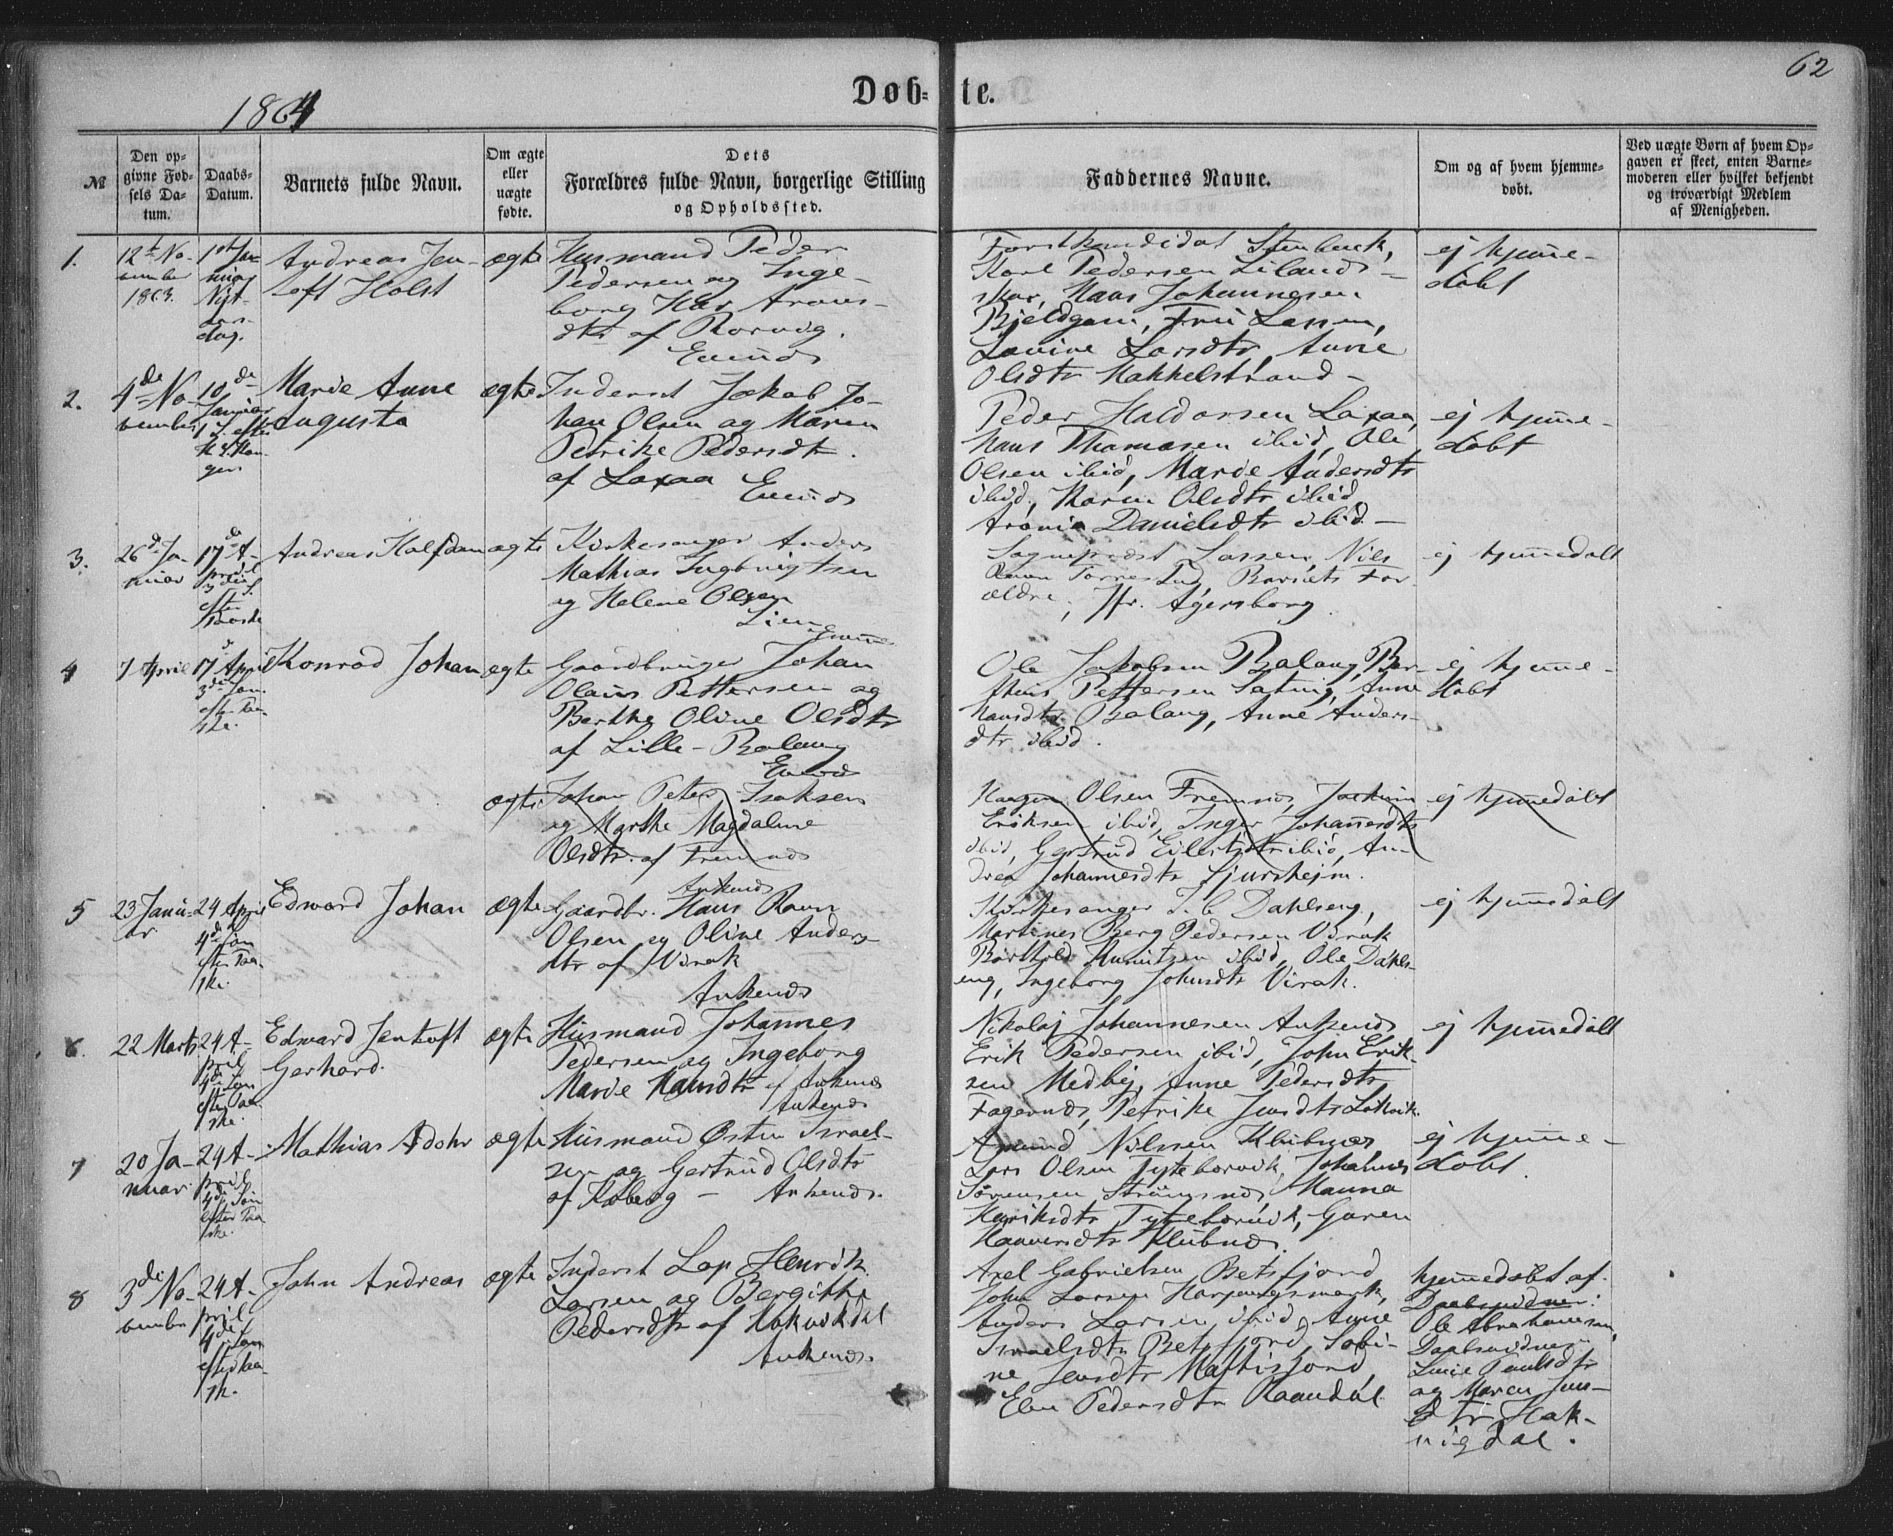 62
Døb-te.
1864
№
Den op-
givne Fød-
sels Da-
tum.
Daabs-
Datum.
Barnets fulde Navn.
Om ægte
eller
uægte
fødte.
Dets
Forældres fulde Navn, borgerlige Stilling
og Opholdssted.
Faddernes Navne.
Om og af hvem hjemme-
døbt.
Ved uægte Børn af hvem Op-
gaven er skeet, enten Barne-
moderen eller hvilket bekjendt
og troværdigt Medlem
af Menigheden.
1.
12t No-
vember
1863.
1st Ja-
nuar
Nyt-
aars-
dag.
Andreas Jen-
toft Holst
ægte
Husmand Peder
Pedersen og Inge-
borg Arons-
dtr af Rørvig.
Evenæs
Forstkandidat Stenbuck,
Karl Pedersen Lilands-
skar, Hans Johannesen
Bjeldgam, Fru Lassen,
Lovine Larsdtr, Anne
Olsdtr Hakkelstrand
ej hjemme-
døbt
2.
4de No-
vember
10de
Januar
1 S. efter
H. 3 Kon-
ger
Marie Anne
Augusta
ægte
Inderst Jakob Jo-
han Olsen og Maren
Petrike Pedersdtr.
af Laxaa
Evenæs
Peder Haldorsen Laxaa,
Hans Thomasen ibid, Ole
Olsen ibid, Marie Andersdtr
ibid, Karen Olsdtr ibid,
Aronia Danielsdtr ibid
ej hjemme-
døbt
3.
26de Ja-
nuar
17de A-
pril
3die S.
efter
Paaske
Andreas Halfdan
ægte
Kirkesanger Anders
Mathias Ingbrigtsen
og Helene Olsen
Lien
Evenæs
Sognepræst Lassen, Nils
Torrestad, Barnets For-
ældre, Hr. Agersborg.
ej hjemmedøbt
4
7 April
17 April
3de Søn.
eft. Paa-
ske.
Konrad Johan
ægte
Gaardbruger Johan
Olaus Pettersen og
Berthe Oline Olsdtr
af Lille-Balang
Evenæs
Ole Jakobsen Balang, Ber-
theus Pettersen Sætnig, Anne
Hansdtr Balang, Anne Anders-
dtr ibid.
ej hjemme-
døbt
ægte
Johan Peter Isaksen
og Marthe Magdalene
Olsdtr. af Fremnæs
Ankenæs
Haagen Olsen Fremnæs, Joakim
Eriksen ibid, Inger Johannesdtr
ibid, Gjertrud Eilertsdtr ibid, An-
drea Johannesdtr Sjurshejm.
ej hjemmedøbt
5
23 Janu-
ar
24 April
4de Søn
efter Paa-
ske.
Edward Johan
ægte
Gaardbr. Hans Ravn
Olsen og Oline Anders-
dtr af Virak
Ankenæs
Kirkesanger I. C. Dahlseng,
Martines Berg Pedersen Virak
Barthold ibid, Ole Dahls-
eng, Ingeborg Johnsdtr Virak.
ej hjemmedøbt
6.
22 Marts
24 A-
pril
4de Søn
efter Paa-
ske.
Edward Jentoft
Gerhard.
ægte
Husmand Johannes
Pedersen og Ingeborg
Marie Hansdtr af Ankenæs
Ankenæs
Nikolaj Johannesen Ankenæs
Erik Pedersen ibid, John Erik-
sen Medby, Anne Pedersdtr
Fagernæs, Petrike Jensdtr
ej hjemmedøbt
7
20 Ja-
nuar
24 A-
pril
4de Søn
efter Paa-
ske.
Mathias Adohr
ægte
Husmand Østen Israel-
sen og Gertrud Olsdtr
af Koberg — Ankenæs.
Amund Nilsen Klubnæs
Lars Olsen Tytebærvik, Johannes
Sørensen Strømsnæs, Hanna
Henriksdtr Tytebærvik, Garen
Haaversdtr Klubnæs.
ej hjemme-
døbt.
8
3de No-
vember
24 A-
pril
4de Søn
efter Paa-
sk.
John Andreas
ægte
Inderst Lap Henrik
Larsen og Bergitha
Pedersdtr af Hokvikdal
Ankenæs
Axel Gabrielsen Beisfjord
John Larsen Harjangsmark,
Anders Larsen ibid, Anne
Israelsdtr Beisfjord, Sobi-
ne Jensdtr Mattisjord,
Elen Pedersdtr Raandal
hjemmedøbt af
Daabsvidner:
Ole Abrahamsen,
Daabsvidner
Lucie Paulsdtr
og Maren Jens-
dtr Hak-
vigdal.